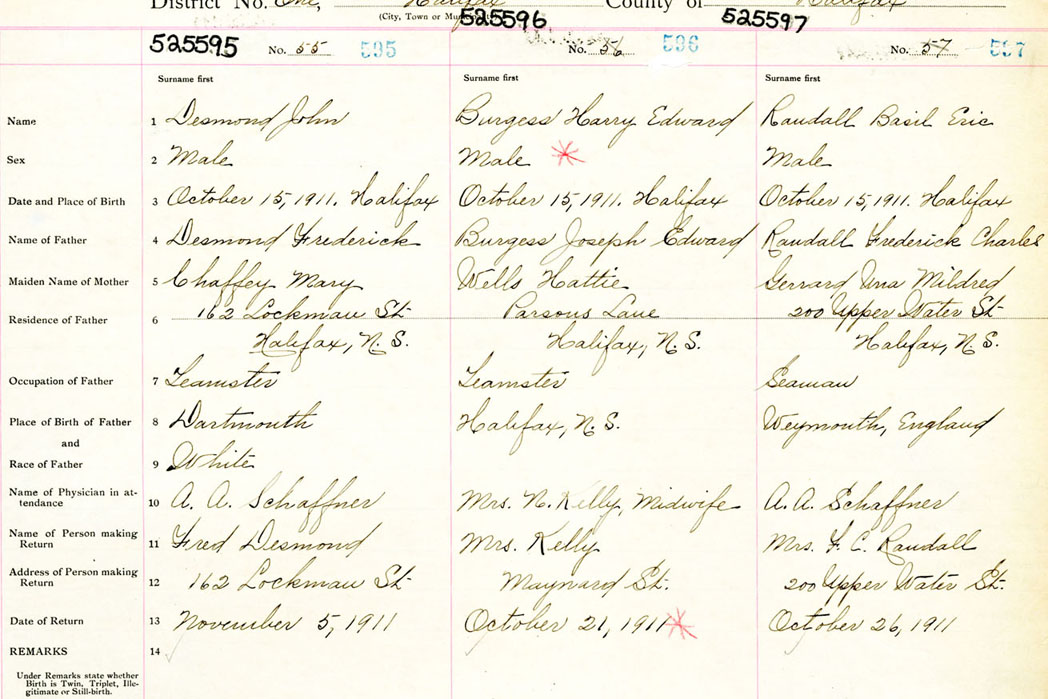 District No. One, Halifax County of Halifax
(City, Town or Municipality)
525596 525597
525595 No. 55 595 No. 56 596 No. 57 597
Surname first Surname first Surname first
Name 1 Desmond John Burgess Harry Edward Randall Basil Eric
Sex 2 Male Male Male
Date and Place of Birth 3 October 15, 1911. Halifax October 15, 1911. Halifax October 15, 1911. Halifax
Name of Father 4 Desmond Frederick Burgess Joseph Edward Randall Frederick Charles
Maiden Name of Mother 5 Chaffey Mary Wells Hattie Gerrard Una Mildred
Residence of Father 6 162 Lockman St. Parsons Lane 200 Upper Water St.
Halifax, N.S. Halifax, N.S. Halifax, N.S.
Occupation of Father 7 Teamster Teamster Seaman
Place of Birth of Father 8 Dartmouth Halifax, N.S. Weymouth, England
and
Race of Father 9 White
Name of Physician in at-
tendance 10 A. A. Schaffner Mrs. N. Kelly, Midwife A. A. Schaffner
Name of Person making
Return 11 Fred Desmond Mrs. Kelly Mrs. F. C. Randall
Address of Person making
Return 12 162 Lockman St. Maynard St. 200 Upper Water St.
Date of Return 13 November 5, 1911 October 21, 1911 October 26, 1911
REMARKS 14
Under Remarks state whether
Birth is Twin, Triplet, Ille-
gitimate or Still-birth.